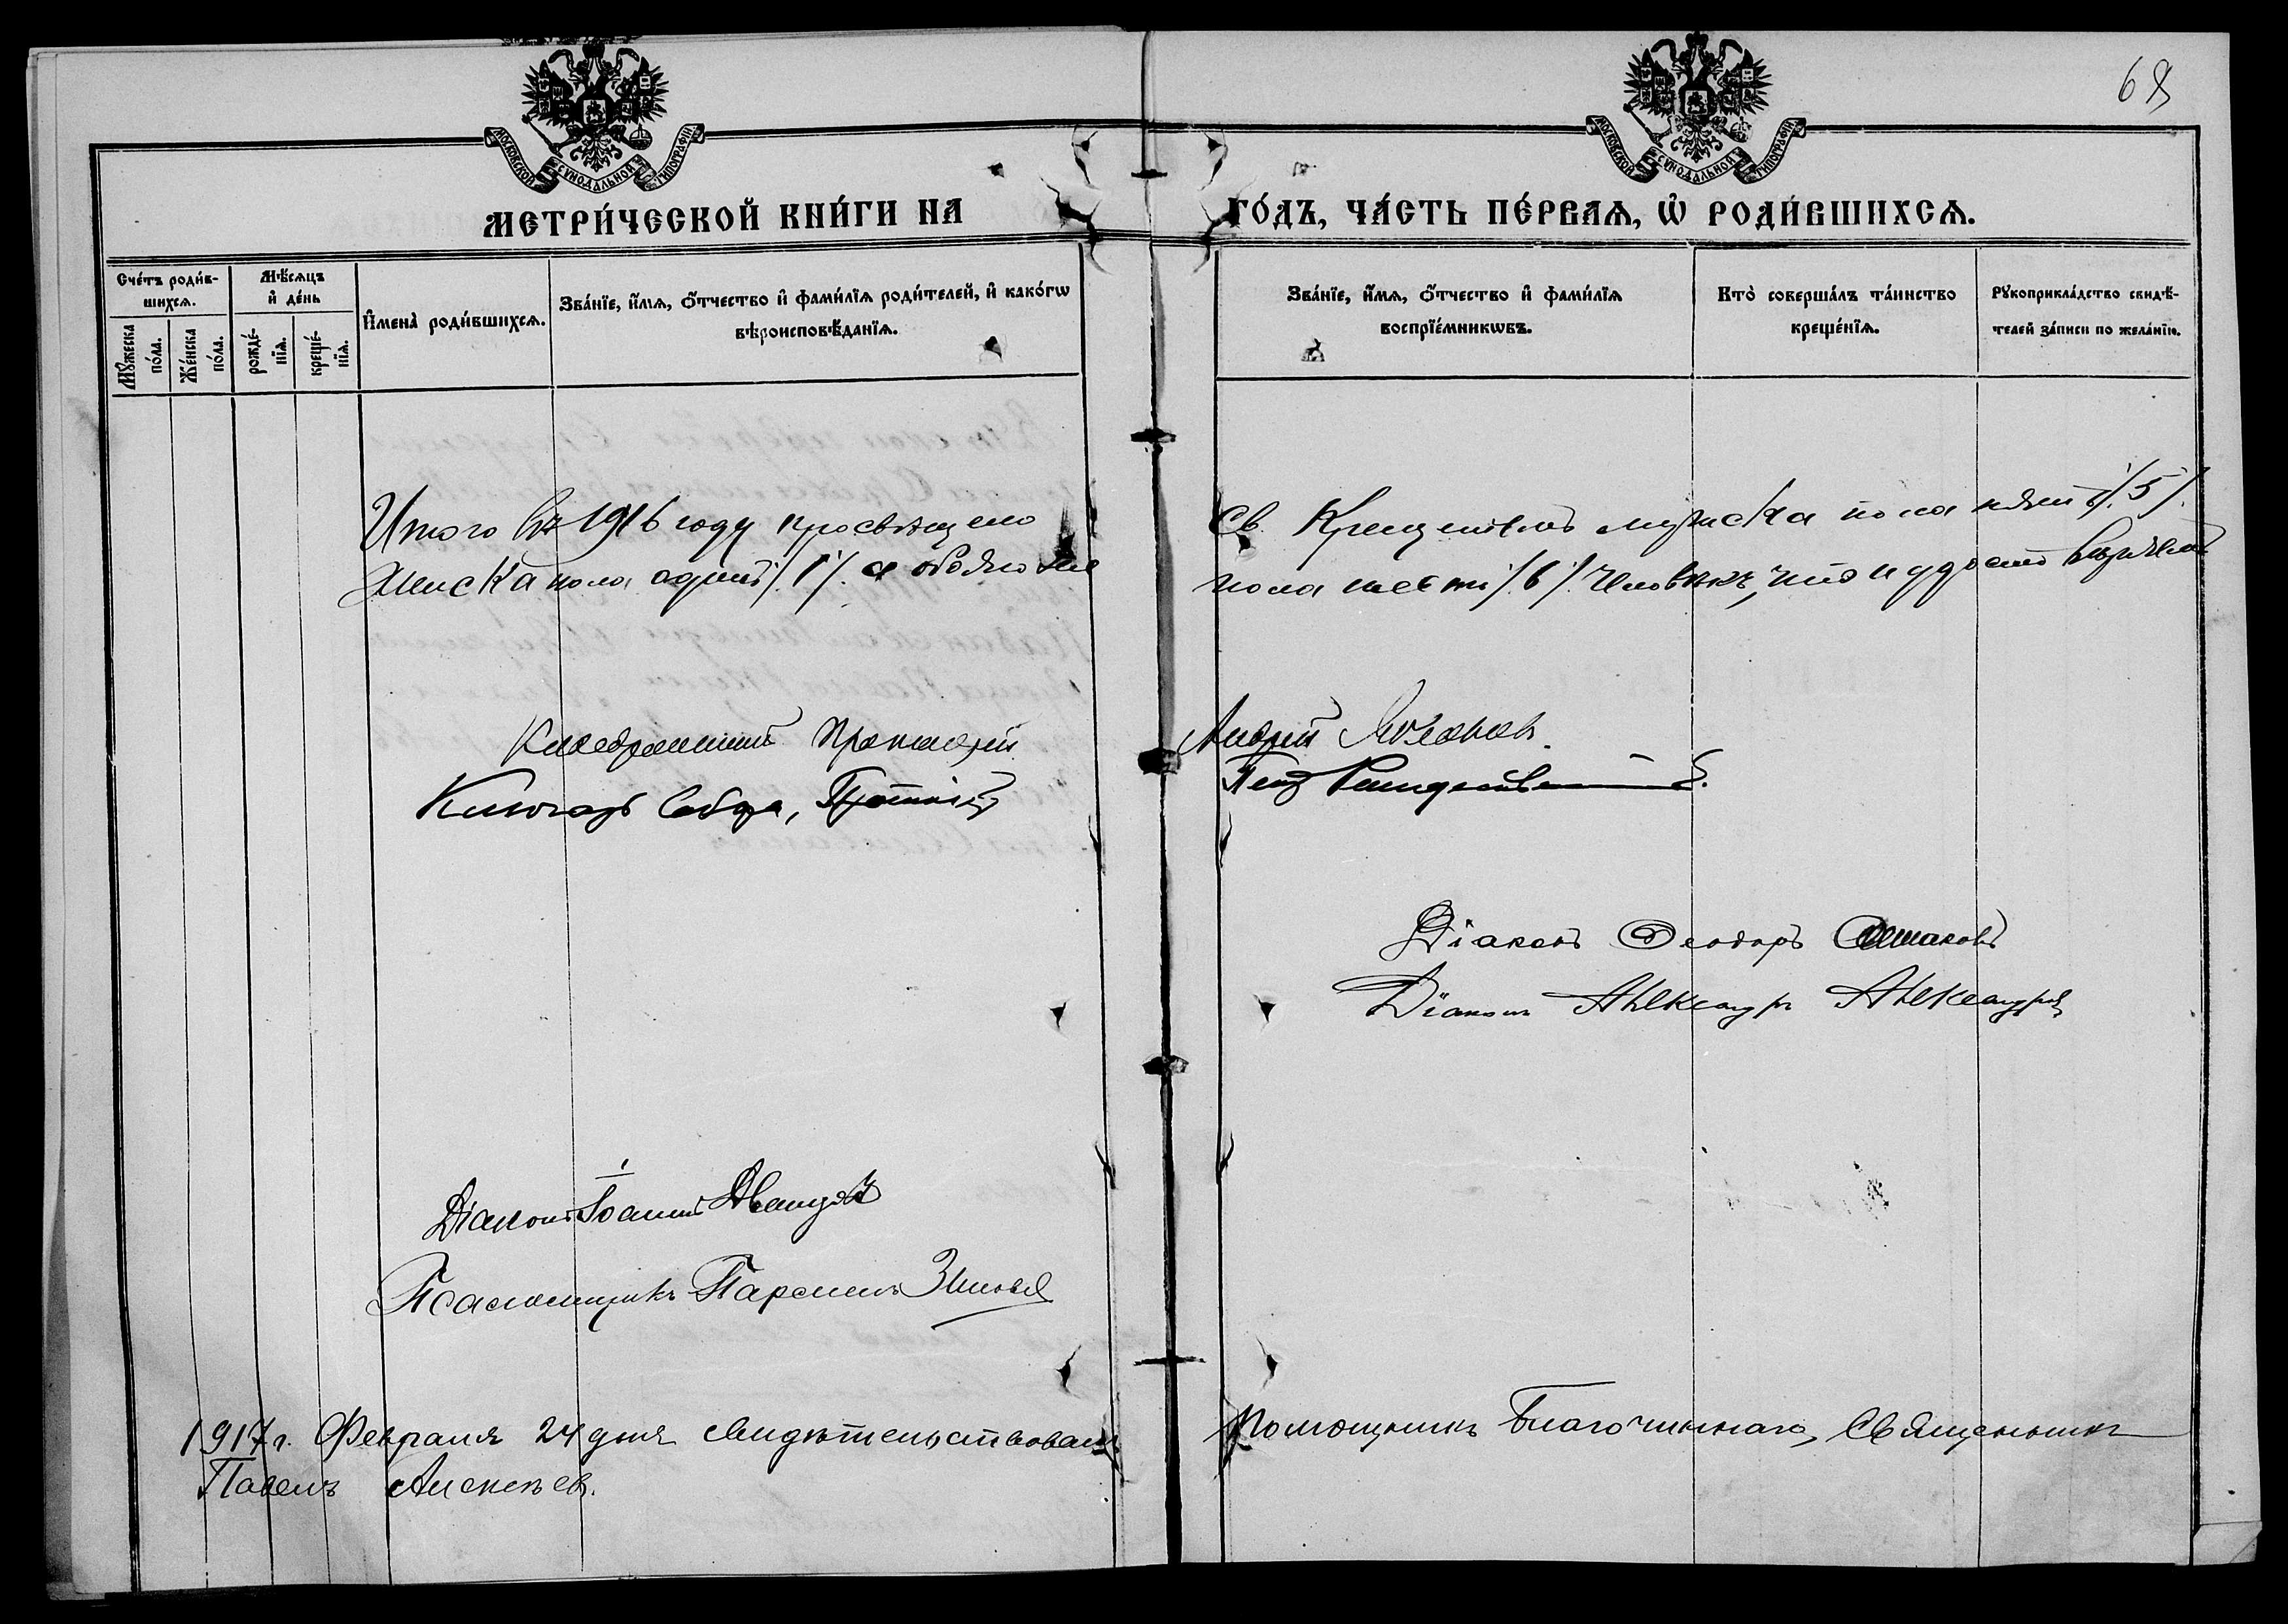 68
МОСКОВСКОЙ СѴНОДАЛЬНОЙ ТИПОГРАФІИ
МОСКОВСКОЙ СѴНОДАЛЬНОЙ ТИПОГРАФІИ
МЕТРИ́ЧЕСКОЙ КНИ́ГИ НА ГО́ДЪ, ЧА́СТЬ ПЕ́РВАѦ, Ѽ РОДИ́ВШИХСѦ.
Сче́тъ роди́в-
шихсѧ.
Мѣ́сѧцъ
и҆ де́нь
Мꙋ́жеска
по́ла.
Же́нска
по́ла.
рожде́-
нїѧ.
креще́-
нїѧ.
И҆мена̀ роди́вшихсѧ.
Зва́нїе, и҆́мѧ, ѻ҆́тчество и҆ фами́лїѧ роди́телей, и҆ како́гѡ
вѣроисповѣ́данїѧ.
Зва́нїе, и҆́мѧ, ѻ҆́тчество и҆ фами́лїѧ
воспрїе́мникѡвъ.
Кто̀ соверша́лъ та́инство
креще́нїѧ.
Рꙋкоприкла́дство свидѣ́-
телей за́писи по жела́нїю.
Итого въ 1916 году просвѣщено Св. Крещеніемъ мужска пола пять /5/.
женска пола одинъ /1/. а обояго пола шесть /6/. человѣкъ, что и удост
Каѳедральный Протоіерей Андрей
Ключарь Собора,
Діаконъ Ѳеодоръ
Діаконъ Александръ Александровъ
Діаконъ Іоаннъ
Псаломщикъ
1917 г. Февраля 24 дня свидѣтельствовалъ Помощникъ Благочиннаго, Священникъ
Павелъ Алексѣев.